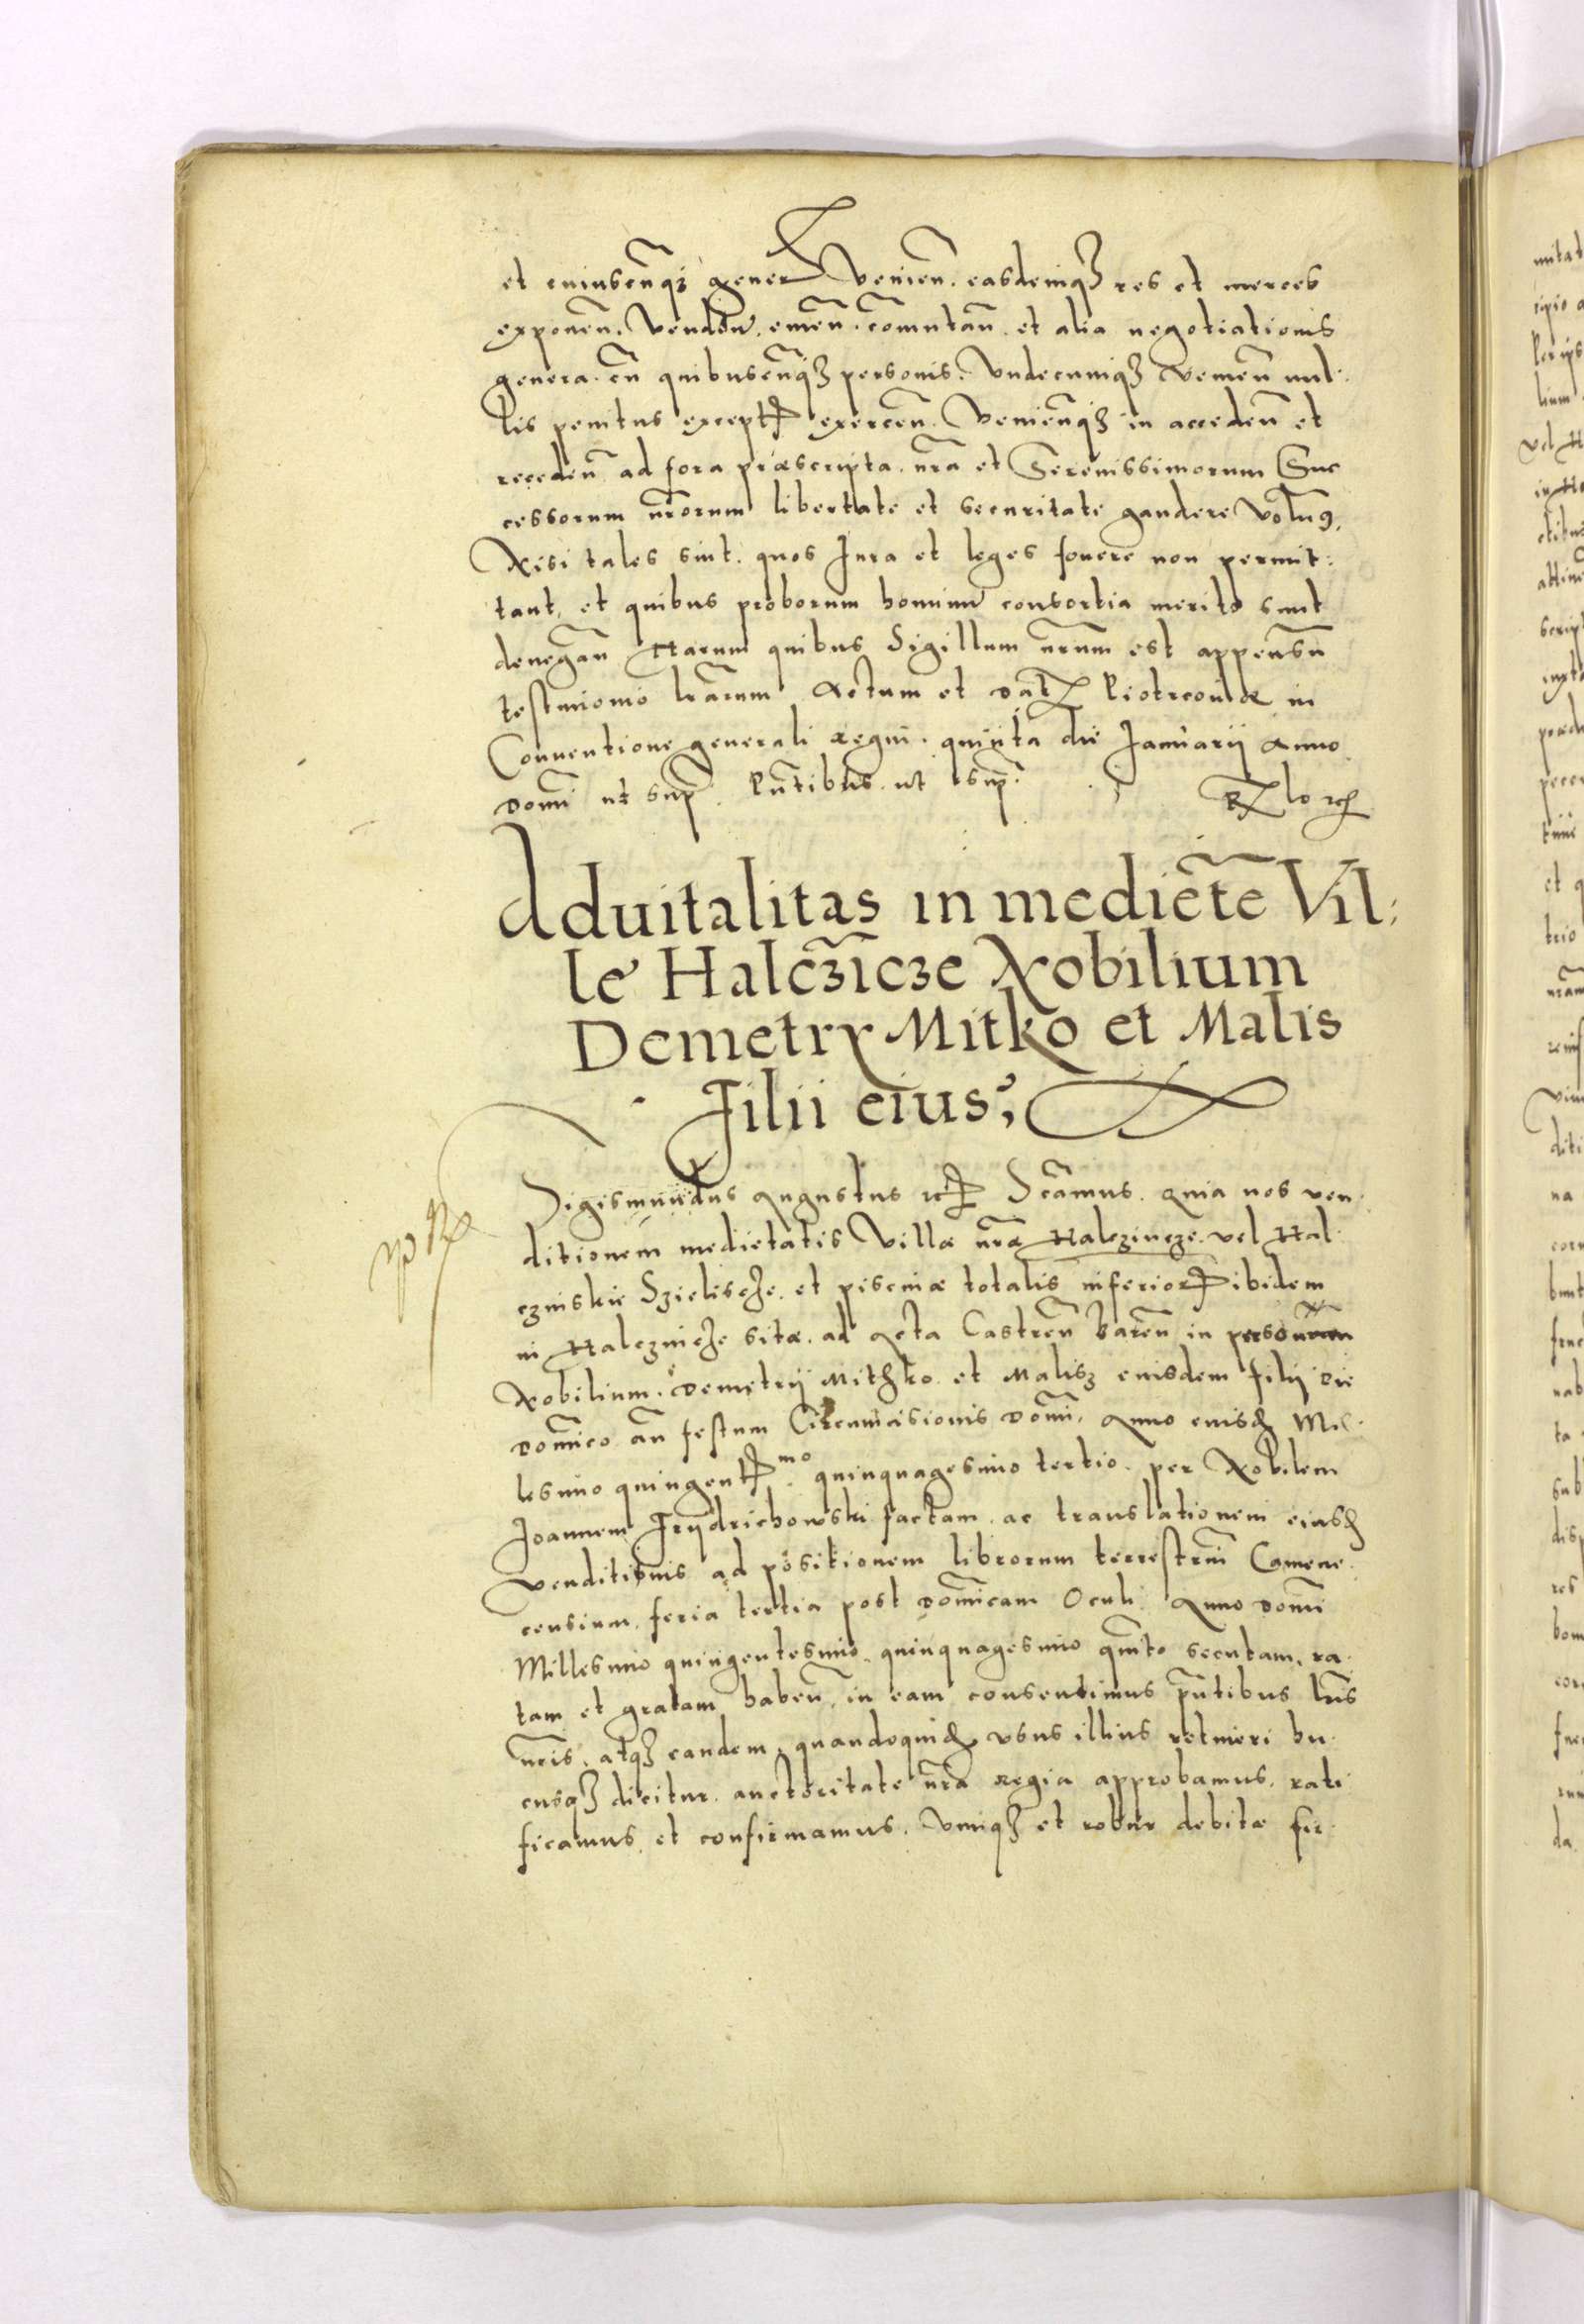 et cuiuscũq3 gener Venien̄. easdemq3 res et merces
exponen̄. Venden̄. emen̄. com̄utan̄. et alia negotiationis
genera. cū quibuscūq3 personis. Vndecumq3 Venien̄ nul:
lis penitus except exercen̄. Venien̄q3 in acceden̄ et
receden̄ ad fora præscripta. nr̄a et Serenissimorum Suc
cessorum nr̄orum libertate et securitate gaudere Volum9.
Nisi tales sint. quos Jura et leges fouere non permit:
tant, et quibus proborum hominū consortia merito sunt
denegan̄ Harum quibus Sigillum nr̄um est appensū
testimonio lr̄arum Actum et Dat Piotrcouiæ in
Conuentione generali Regni. quinta die Januarij Anno
Domi ut sup̄. Pn̄tibus. ut sup̄.
Aduitalitas in mediet̄e Vil:
le Halcz̄icze Nobilium
Demetry Mitko et Malis
Filii eius;
Sigismundus Augustus etc Scāmus. Quia nos ven
ditionem medietatis Villæ nr̄æ Halczincze vel Hal:
czinskie Szieliscze. et piscinæ totalis inferior ibidem
in Halczincze sitæ. ad Acta Castren̄ Baren̄ in personam
Nobilium. Demetrij Mithko. et Malisz eiusdem filij Die
Domīco an̄ festum Circumcisionis Domī. Anno eiusd Mil:
lesimo quingent mo quinquagesimo tertio. per Nobilem
Joannem Frydrichowski factam. ac translationem eiusd
Venditionis ad positionem librorum terrestriū Camene:
censium. feria tertia post Domīcam Oculi. Anno Domī
Millesimo quingentesimo. quinquagesimo quīto secutam. ra:
tam et gratam haben̄ in eam consentimus pn̄tibus lr̄is
nr̄is. atq3 eandem. quandoquid vsus illius retineri hu:
cusq3 dicitur. auctoritate nr̄a Regia approbamus. rati
ficamus. et confirmamus. Vimq3 et robur debitæ fir: